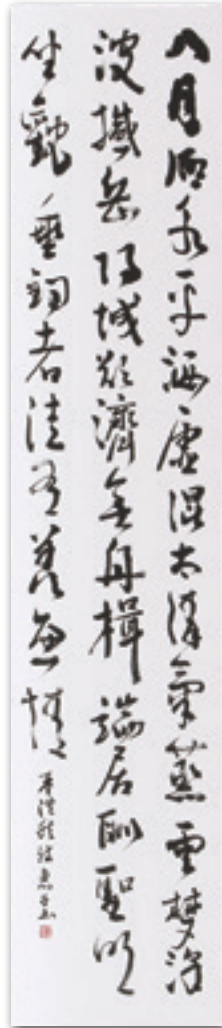 八月湖水平涵虛混太清氣蒸雲夢澤
波撼岳陽城欲濟無舟楫端居恥聖明
坐觀垂釣者徒有羨魚情